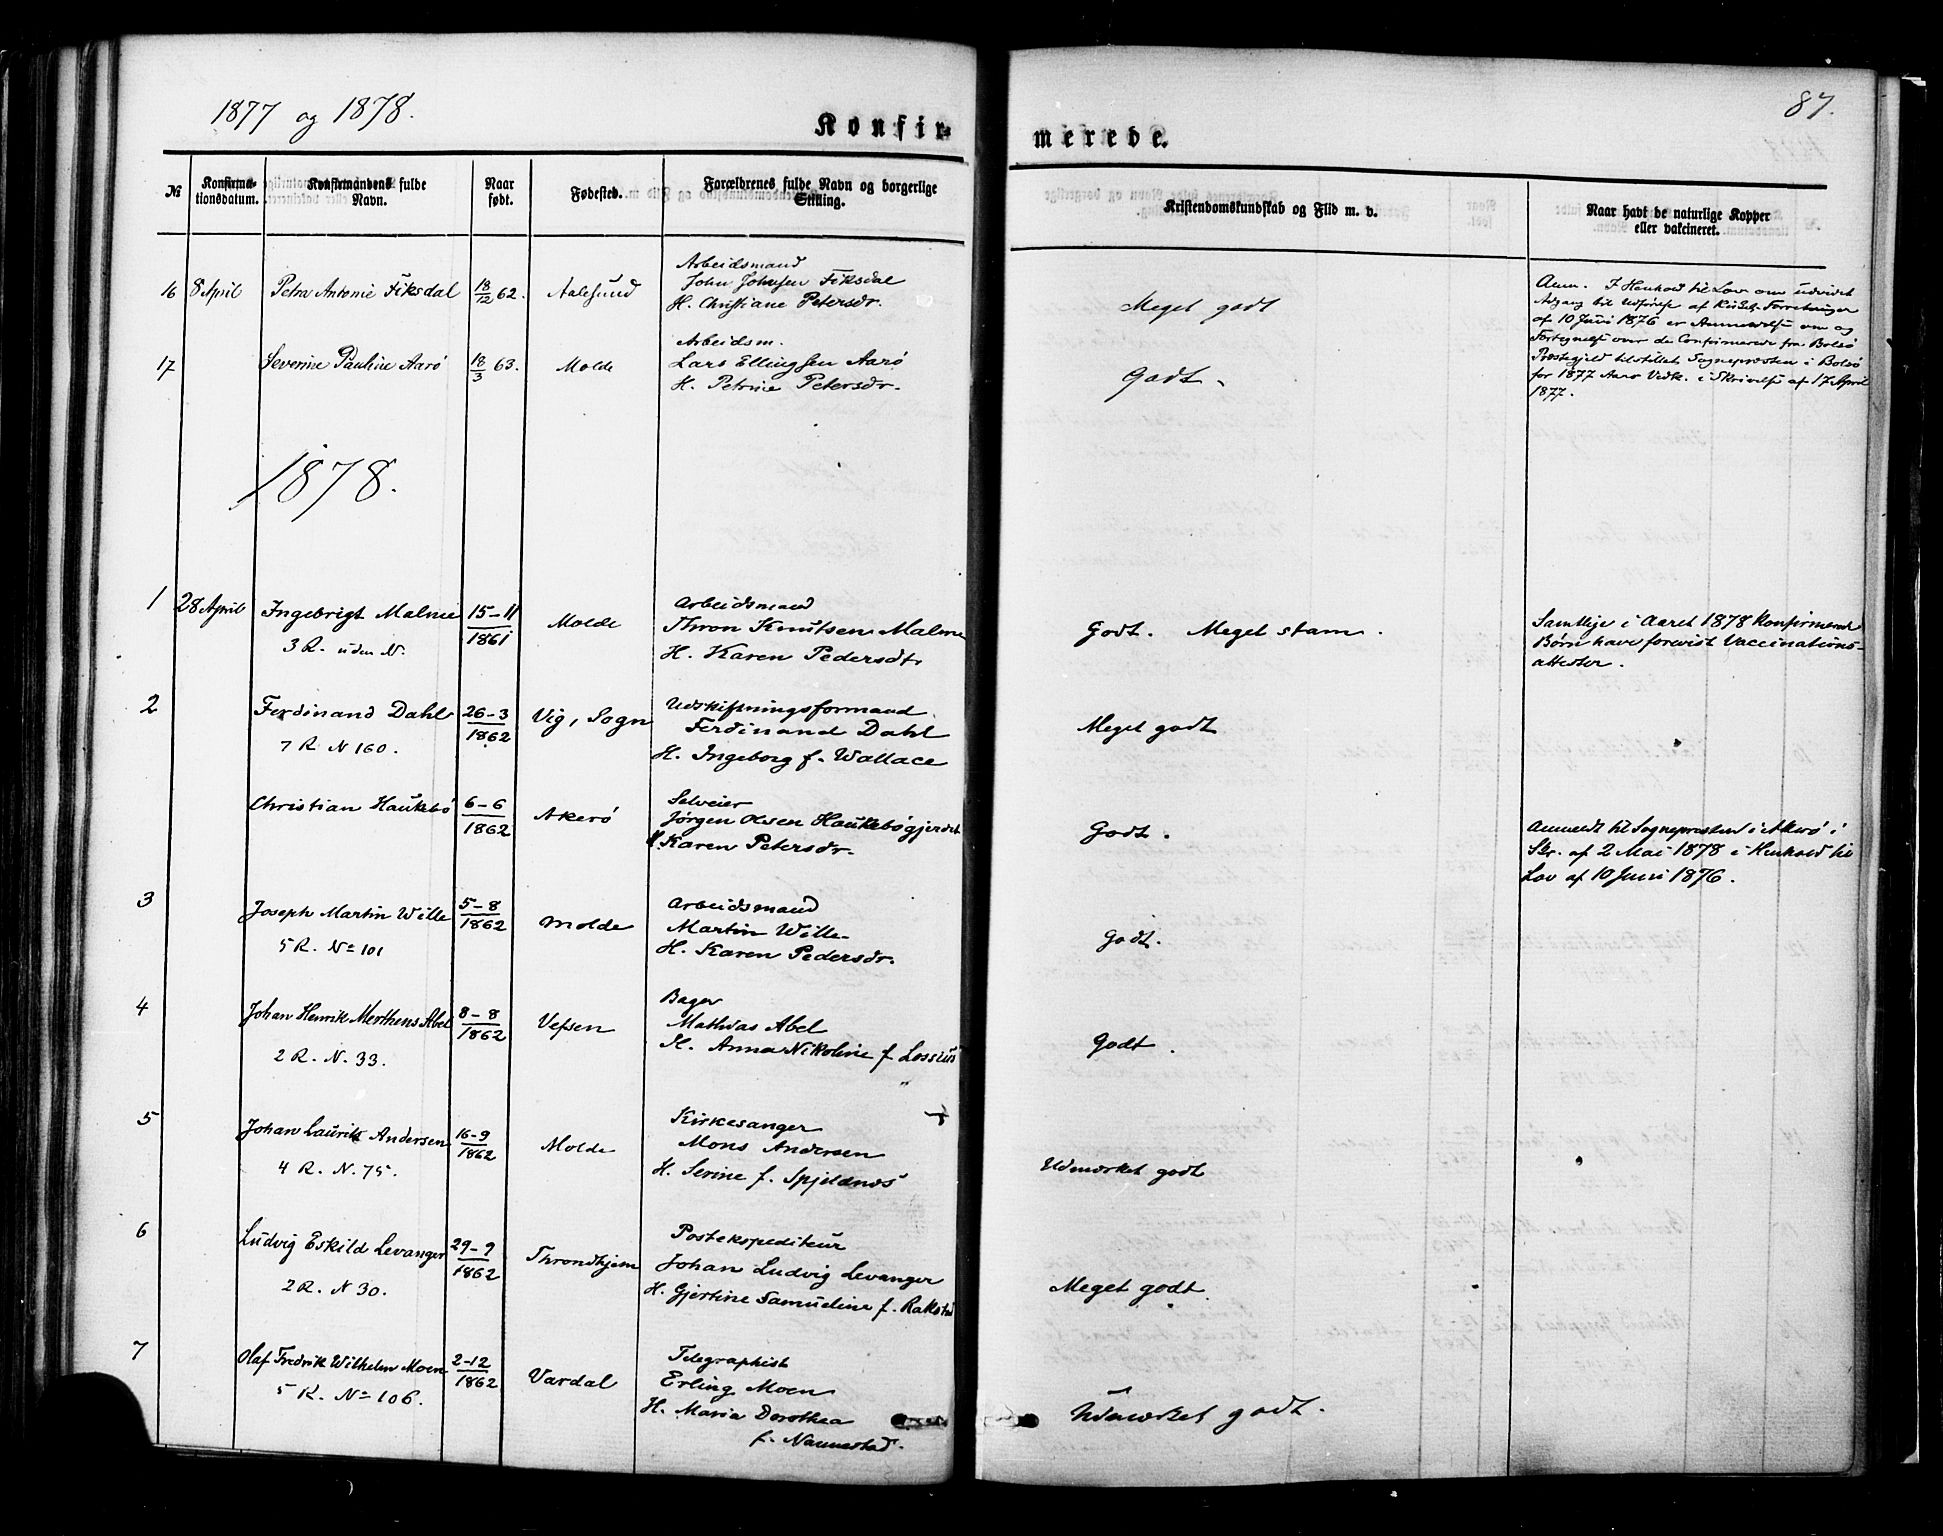 1877 og 1878.
87.
Konfir-
merede.
№
Konfirma-
tionsdatum.
Konfirmandens fulde
Navn.
Naar
født.
Fødested.
Forældrenes fulde Navn og borgerlige
Stilling.
Kristendomskundskab og Flid m. v.
Naar havt de naturlige Kopper
eller vakcineret.
16 8 April Petra Antonie Fiksdal 18/12 62. Aalesund
Arbeidsmand
John Johnsen Fiksdal
H. Christiane Petersdr.
Meget godt
Anm. I Henhold til Lov om udvidet
Adgang til Udførelse af Kirkel. Forretninger
af 10 Juni 1876 er Anmeldelse om og
Fortegnelse over de Confirmerede fra Bolsø
Præstegjeld tilstillet Sognepresten i Bolsø
for 1877 Aars Vedk. i Skrivelse af 17 April
1877.
17 Severine Pauline Aarø 18/3 63. Molde
Arbeidsm.
Lars Ellingsen Aarø
H. Petrine Petersdr.
Godt.
1878.
1 28 April Ingebrigt Malme 15-11/1861 Molde
3 R. uden N.
Arbeidsmand
Thron Knutsen Malme
H. Karen Pedersdtr
Godt. Meget stam.
Samtlige i Aaret 1878 Konfirmerede
Børn have forevist Vaccinations-
attester.
2 Ferdinand Dahl 26-3/1862 Vig, Sogn
7 R. N 160.
Udskiftningsformand
Ferdinand Dahl
H. Ingeborg f. Wallace
Meget godt
Christian Haukebø 6-6/1862 Akerø
Selveier
Jørgen Olsen Haukebøgjerdet
H. Karen Petersdr.
Godt.
Anmeldt til Sognepresten i Akerø i
Skr. af 2 Mai 1878 i Henhold til
Lov af 10 Juni 1876.
3 Joseph Martin Wille 5-8/1862 Molde
5 R. No 101
Arbeidsmand
Martin Wille
H. Karen Pedersdr.
Godt.
4 Johan Henrik Merthens Abel 8-8/1862 Vefsen
2 R. N. 33.
Bager
Mathias Abel
H. Anna Nikoline f. Lossius
Godt.
5 Johan Lauritz Andersen 16-9/1862 Molde
4 R. N. 75.
Kirkesanger
Mons Andersen
H. Serine f. Spjeldnæs
Udmærket godt
6 Ludvig Eskild Levanger 29-9/1862 Throndhjem
2 R. N 30.
Postekspediteur
Johan Ludvig Levanger
H. Gjertine Samueline f. Rakstad
Meget godt.
7 Olaf Fredrik Wilhelm Moen 2-12/1862 Vardal
5 R. No 106.
Telegraphist
Erling Moen
H. Maria Dorothea
f. Nannestad.
Udmærket godt.